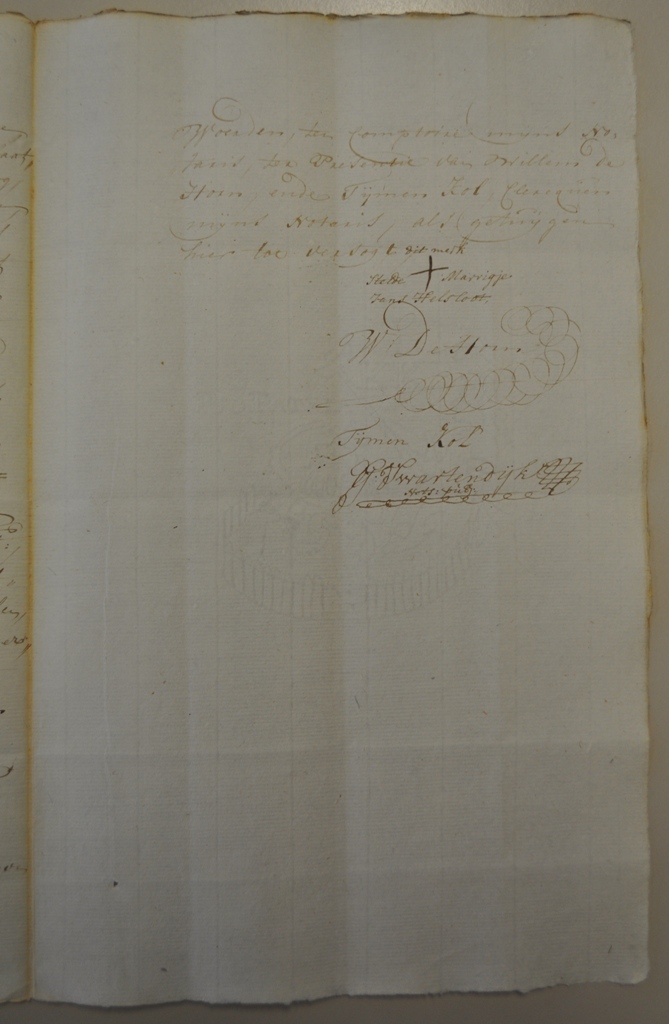 Woerden, ten Comptoire mijns No-
taris, ter Presentie van Willem de
Horn, ende Tijmen Kol, Clercquen
mijns Notaris, als getuijgen
hier toe versogt
dit merk
stelde + Marrigje
Jans Helsloot.
W: De Horn
Tijmen Kol
Swartendijk
Nots: Publ: